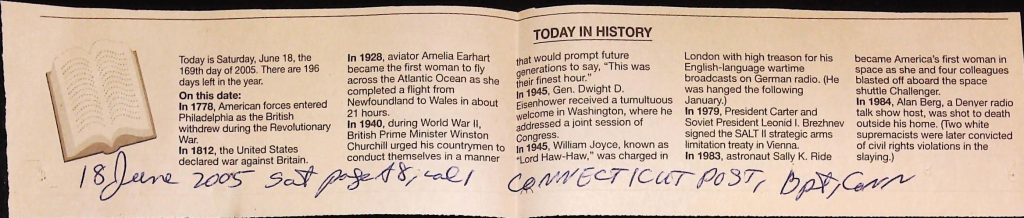 TODAY IN HISTORY
Today is Saturday, June 18, the
169th day of 2005. There are 196
days left in the year.
On this date:
In 1778, American forces entered
Philadelphia as the British
withdrew during the Revolutionary
War.
In 1812, the United States
declared war against Britain.
In 1928, aviator Amelia Earhart
became the first woman to fly
across the Atlantic Ocean as she
completed a flight from
Newfoundland to Wales in about
21 hours.
In 1940, during World War II,
British Prime Minister Winston
Churchill urged his countrymen to
conduct themselves in a manner
that would prompt future
generations to say, "This was
their finest hour."
In 1945, Gen. Dwight D.
Eisenhower received a tumultuous
welcome in Washington, where he
addressed a joint session of
Congress.
In 1945, William Joyce, known as
"Lord Haw-Haw," was charged in
London with high treason for his
English-language wartime
broadcasts on German radio. (He
was hanged the following
January.)
In 1979, President Carter and
Soviet President Leonid I. Brezhnev
signed the SALT II strategic arms
limitation treaty in Vienna.
In 1983, astronaut Sally K. Ride
became America's first woman in
space as she and four colleagues
blasted off aboard the space
shuttle Challenger.
In 1984, Alan Berg, a Denver radio
talk show host, was shot to death
outside his home. (Two white
supremacists were later convicted
of civil rights violations in the
slaying.)
18 June 2005 Sat page A8, col 1 CONNECTICUT POST, Bpt, Conn